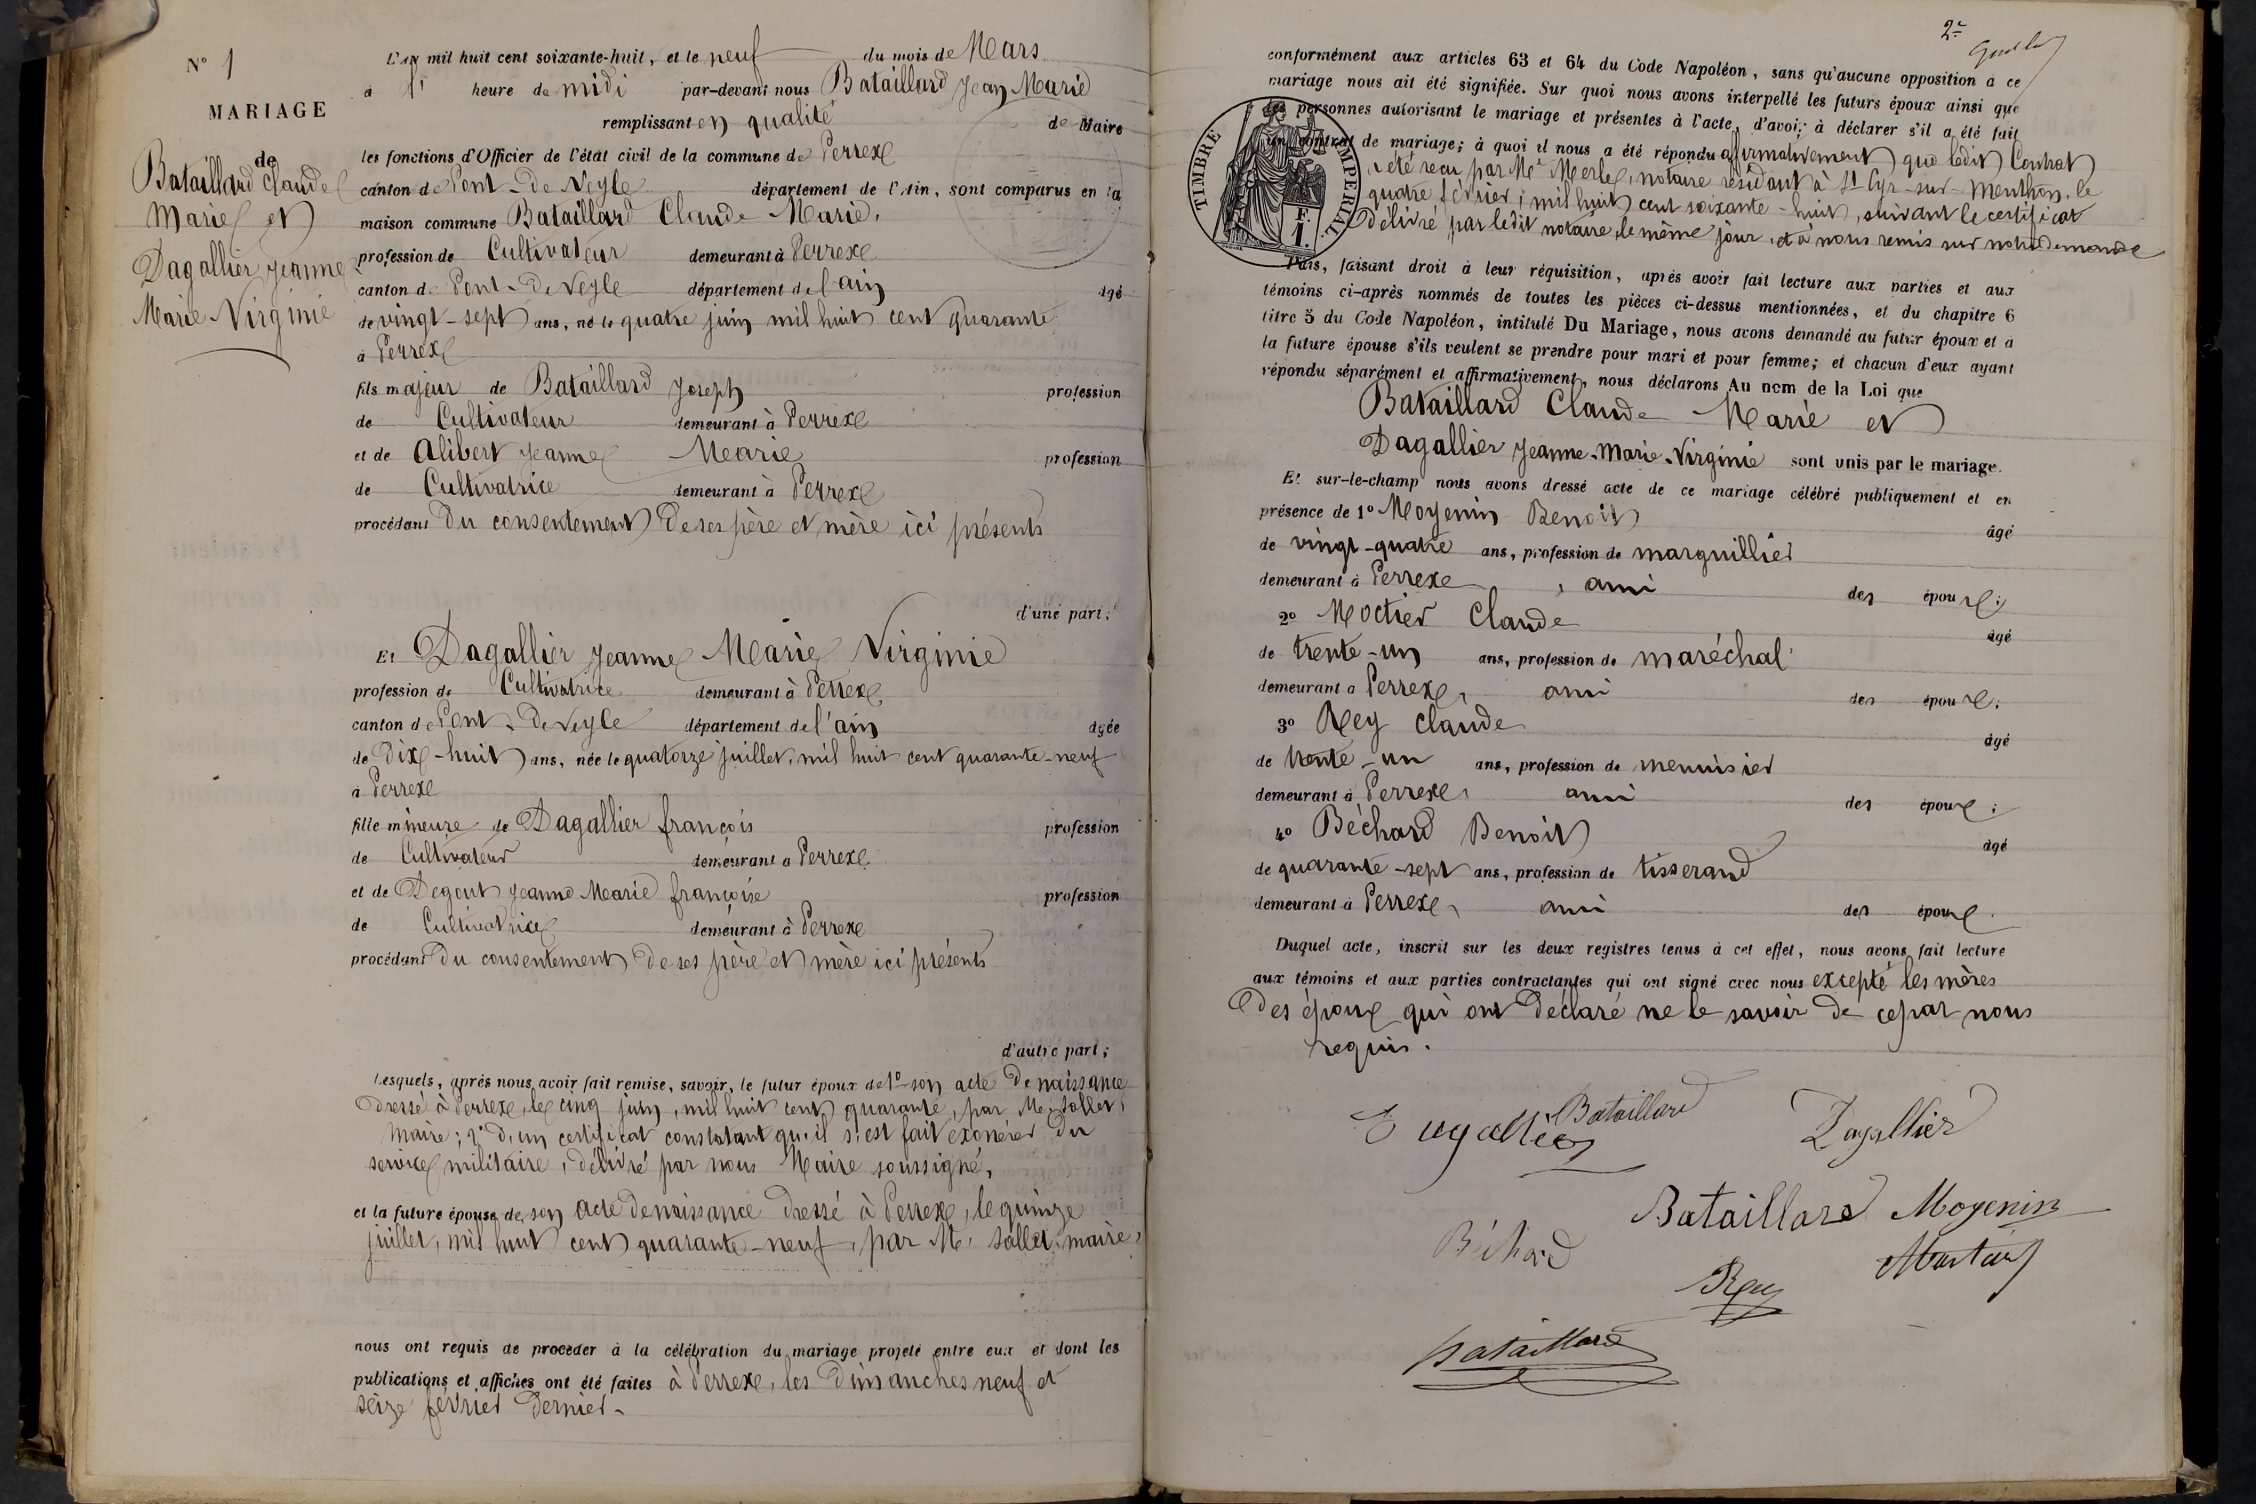 N° 1
MARIAGE
de
Bataillard Claude
Marie et
Dagallier Jeanne
Marie-Virginie
L'an mil huit cent soixante-huit, et le neuf du mois de Mars
à l' heure de midi par-devant nous Bataillard Jean Marie
remplissant en qualité de Maire
les fonctions d'Officier de l'état civil de la commune de Perrex
canton de Pont-de-Veyle département de l'Ain, sont comparus en la
maison commune Bataillard Claude Marie,
profession de Cultivateur demeurant à Perrex
canton de Pont-de-Veyle département de l'ain âgé
de vingt-sept ans, né le quatre juin mil huit cent quarante
à Perrex
fils majeur de Bataillard Joseph profession
de Cultivateur demeurant à Perrex
et de Alibert Jeanne Marie profession
de Cultivatrice demeurant à Perrex
procédant du consentement de ses père et mère ici présents
d'une part;
Et Dagallier Jeanne Marie Virginie
profession de Cultivatrice demeurant à Perrex
canton de Pont-de-Veyle département de l'ain âgée
de dix-huit ans, née le quatorze juillet, mil huit cent quarante-neuf
à Perrex
fille mineure de Dagallier françois profession
de Cultivateur demeurant à Perrex
et de Degout Jeanne Marie françoise profession
de Cultivatrice demeurant à Perrex
procédant du consentement de ses père et mère ici présents
d'autre part;
Lesquels, après nous avoir fait remise, savoir, le futur époux de 1° son acte de naissance
dressé à Perrex, le cinq juin, mil huit cent quarante, par M. Sallet,
Maire; 2° d'un certificat constatant qu'il s'est fait exonérer du
service militaire, délivré par nous Maire soussigné,
et la future épouse de son acte de naissance dressé à Perrex, le quinze
juillet, mil huit cent quarante-neuf, par M. Sallet, maire,
nous ont requis de procéder à la célébration du mariage projeté entre eux et dont les
publications et affiches ont été faites à Perrex, les dimanches neuf et
seize février dernier.
2e
conformément aux articles 63 et 64 du Code Napoléon, sans qu'aucune opposition à ce
mariage nous ait été signifiée. Sur quoi nous avons interpellé les futurs époux ainsi que
les personnes autorisant le mariage et présentes à l'acte, d'avoir à déclarer s'il a été fait
un contrat de mariage; à quoi il nous a été répondu affirmativement que ledit Contrat
a été reçu par Me Merle, notaire résidant à St Cyr-sur-Menthon, le
quatre février, mil huit cent soixante-huit, suivant le certificat
délivré par ledit notaire, le même jour, et à nous remis sur notre demande
TIMBRE IMPERIAL
F.
1.
Puis, faisant droit à leur réquisition, après avoir fait lecture aux parties et aux
témoins ci-après nommés de toutes les pièces ci-dessus mentionnées, et du chapitre 6
titre 5 du Code Napoléon, intitulé Du Mariage, nous avons demandé au futur époux et à
la future épouse s'ils veulent se prendre pour mari et pour femme; et chacun d'eux ayant
répondu séparément et affirmativement, nous déclarons Au nom de la Loi que
Bataillard Claude Marie et
Dagallier Jeanne-Marie-Virginie sont unis par le mariage.
Et sur-le-champ nous avons dressé acte de ce mariage célébré publiquement et en
présence de 1° Moyenin Benoit âgé
de vingt-quatre ans, profession de marguillier
demeurant à Perrex, ami des époux;
2° Moctier Claude âgé
de trente-un ans, profession de maréchal
demeurant à Perrex, ami des époux;
3° Rey Claude âgé
de trente-un ans, profession de menuisier
demeurant à Perrex, ami des époux;
4° Béchard Benoit âgé
de quarante-sept ans, profession de tisserand
demeurant à Perrex, ami des époux.
Duquel acte, inscrit sur les deux registres tenus à cet effet, nous avons fait lecture
aux témoins et aux parties contractantes qui ont signé avec nous excepté les mères
des époux qui ont déclaré ne le savoir de ce par nous
requis.
Bataillard
Dagallier
Bataillard Moyenin
Béchard
Rey
Bataillard